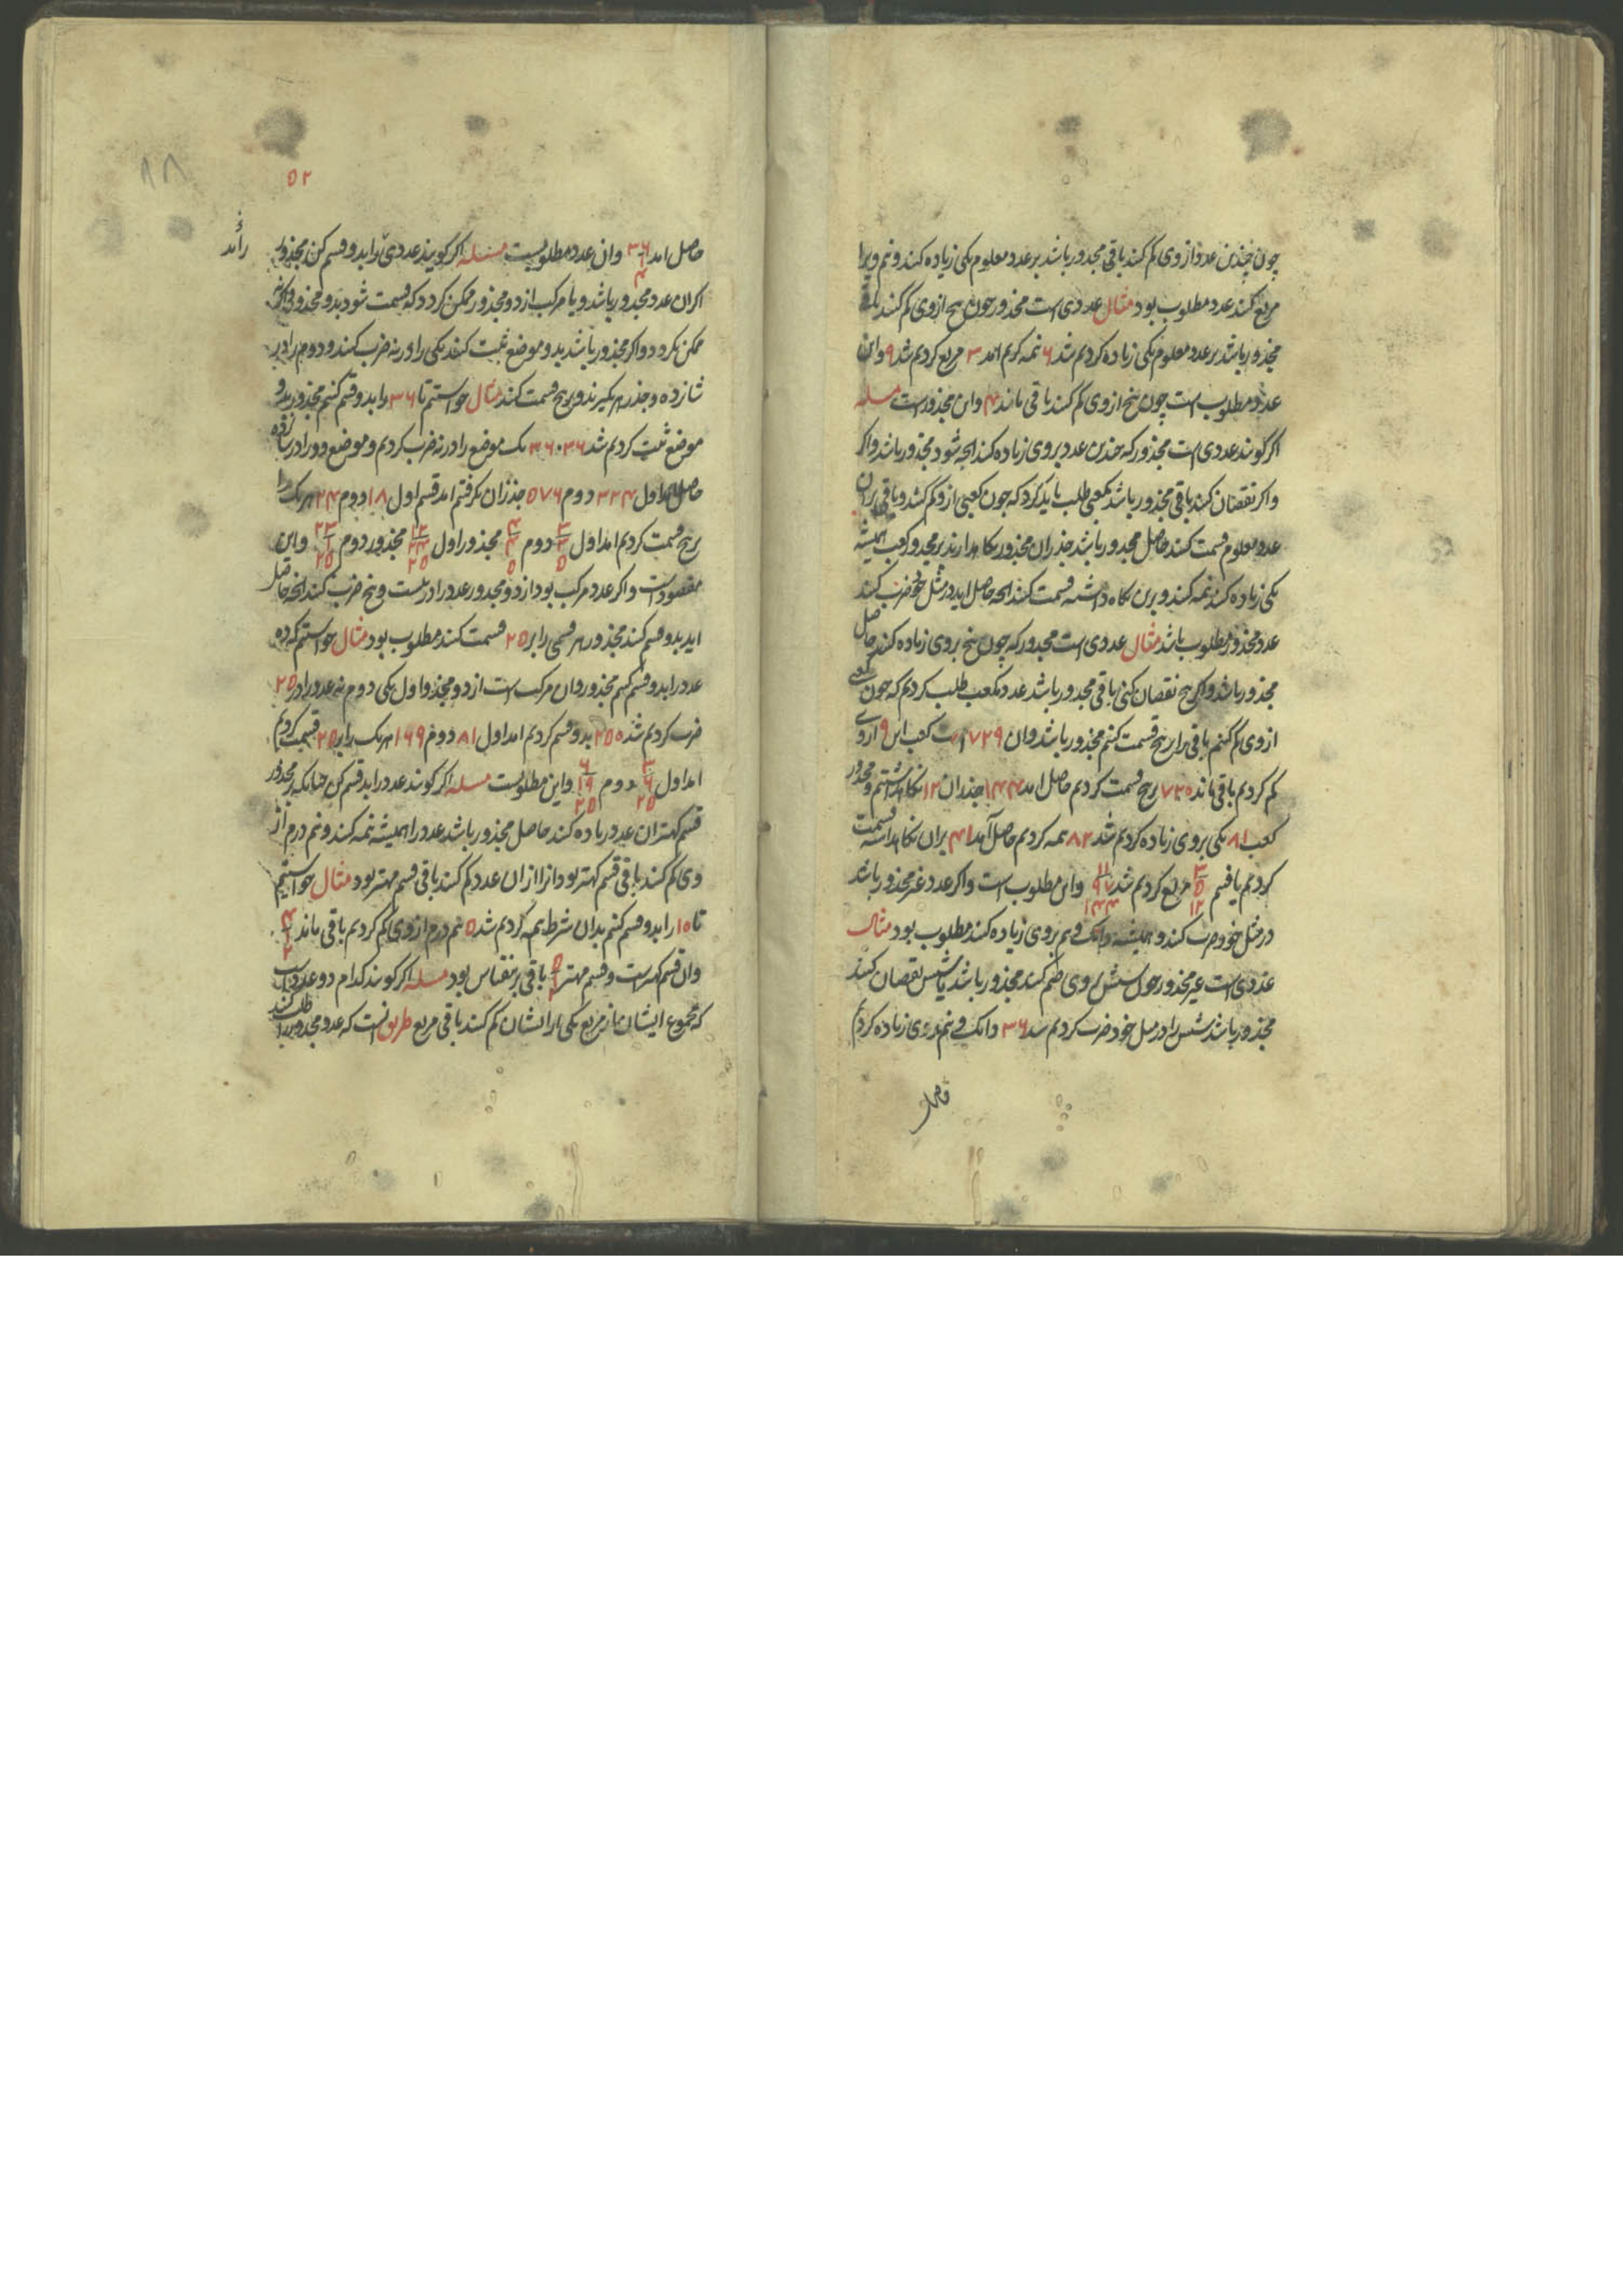 چون چندین عدد از وی کم کنند باقی مجذور باشد بر عدد معلوم یکی زیاده کنند و نیم ویرا
مربع کنند عدد مطلوب بود مثال عددی است مجذور چون پنج از وی کم کنند باقی
مجذور باشد بر عدد معلوم یکی زیاده کردیم شد ۶ نیمه کردیم امد ۳ مربع کردیم شد ۹ و این
عدد مطلوب است چون پنج از وی کم کنند باقی ماند ۴ و این مجذور است مسله
اگر گویند عددی است مجذور که چندین عدد بروی زیاده کنند انچه شود مجذور باشد و اگر
و اگر نقصان کنند باقی مجذور باشد مکعبی طلب باید کرد که چون کعبی ازو کم کنند و باقی بران
عدد معلوم قسمت کنند حاصل مجذور باشد جذر ان مجذور نگاه دارند بر مجذور کعب همیشه
یکی زیاده کنند نیمه کنند و برین نگاه داشته قسمت کنند انچه حاصل اید در مثل خود ضرب کنند
عدد مجذور مطلوب باشد مثال عددی است مجذور که چون پنج بروی زیاده کنند حاصل
مجذور باشد و اگر پنج نقصان کنی باقی مجذور باشد عدد مکعب طلب کردیم که چون کعبی
از وی کم کنیم باقی را بر پنج قسمت کنیم مجذور باشد و ان ۷۲۹ است کعب این ۹ از وی
کم کردیم باقی ماند ۷۲۰ بر پنج قسمت کردیم حاصل امد ۱۴۴ جذر ان ۱۲ نگاه داشتیم و مجذور
کعب ۸۱ یکی بروی زیاده کردیم شد ۸۲ نیمه کردیم حاصل آمد ۴۱ بران نگاه داشته قسمت
کردیم یافتیم ۳ ۵ ۱۲ مربع کردیم شد ۱۱ ۹۷ ۱۴۴ و این مطلوب است و اگر عدد غیر مجذور باشد
در مثل خود ضرب کنند و همیشه دانکی و نیم بروی زیاده کنند مطلوب بود مثال
عددی است غیر مجذور چون شش بروی ضم کنند مجذور باشد یا شش نقصان کنند
مجذور باشد شش را در مثل خود ضرب کردیم شد ۳۶ دانکی و نیم بروی زیاده کردیم
۵۲
حاصل امد ۳۶ ۱ ۴ و ان عدد مطلوبست مسئله اگر گویند عددی را بدو قسم کن مجذور
اگر ان عدد مجذور باشد و یا مرکب از دو مجذور ممکن گردد که قسمت شود بدو مجذور و اگر نه
ممکن نگردد و اگر مجذور باشد بدو موضع ثبت کنند یکی را در نه ضرب کنند و دوم را در
شانزده و جذر هر یکیرند و بر پنج قسمت کنند مثال خواستیم تا ۳۶ را بدو قسم کنیم مجذور بدو
موضع ثبت کردیم شد ۳۶ ۳۶ یک موضع را در نه ضرب کردیم و موضع دو را در شانزده
حاصل امد اول ۳۲۴ دوم ۵۷۶ جذر ان گرفتیم امد قسم اول ۱۸ دوم ۲۴ هر یک را
بر پنج قسمت کردیم امد اول ۳ ۳ ۵ دوم ۴ ۴ ۵ مجذور اول ۱۲ ۲۴ ۲۵ مجذور دوم ۲۳ ۱ ۲۵ و این
مقصود است و اگر عدد مرکب بود از دو مجذور عدد را در بیست و پنج ضرب کنند انچه حاصل
اید بدو قسم کنند مجذور هر قسمی را بر ۲۵ قسمت کنند مطلوب بود مثال خواستیم که ده
عدد را بدو قسم کنیم مجذور و ان مرکب است از دو مجذور اول یکی دوم نه عدد را در ۲۵
ضرب کردیم شد ۲۵۰ بدو قسم کردیم امد اول ۸۱ دوم ۱۶۹ هر یک را بر ۲۵ قسمت کردیم
امد اول ۳ ۶ ۲۵ دوم ۶ ۱۹ ۲۵ و این مطلوبست مسله اگر گویند عدد را بدو قسم کن چنانکه بر مجذور
قسم کهتر ان عدد زیاده کنند حاصل مجذور باشد عدد را همیشه نیمه کنند و نیم درم از
وی کم کنند باقی قسم کهتر بود انرا از ان عدد کم کنند باقی قسم مهتر بود مثال خواستیم
تا ۱۰ را بدو قسم کنیم بدان شرط نیمه کردیم شد ۵ نیم درم از وی کم کردیم باقی ماند ۴ ۱ ۲
و ان قسم کهتر است و قسم مهتر ۵ ۱ ۲ باقی بر نقیاس بود مسله اگر گویند کدام دو عدد است
که مجموع ایشان از مربع یکی از ایشان کم کنند باقی مربع طریق انست که عدد مجذور را طلب کنند